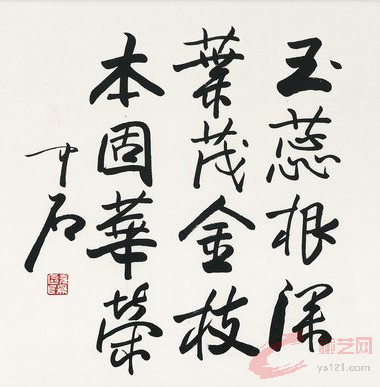 玉蕊根深
葉茂金枝
本固華榮
中石
雅艺网
ys121.com